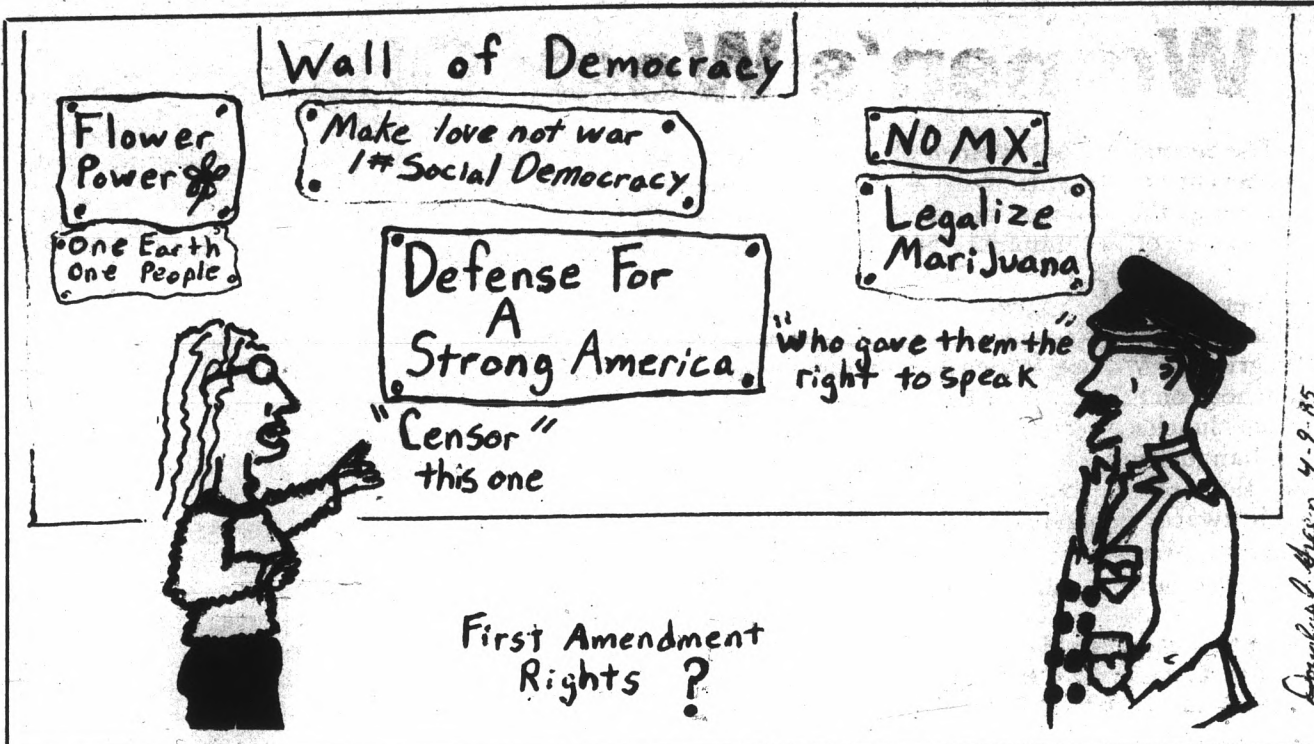 Wall of Democracy
Flower
Power
One Earth
One People
Make love not war
1# Social Democracy
NO MX
Legalize
MariJuana
Defense For
A
Strong America
"Who gave them the"
right to speak
"Censor"
this one
First Amendment
Rights ?
4-9-85